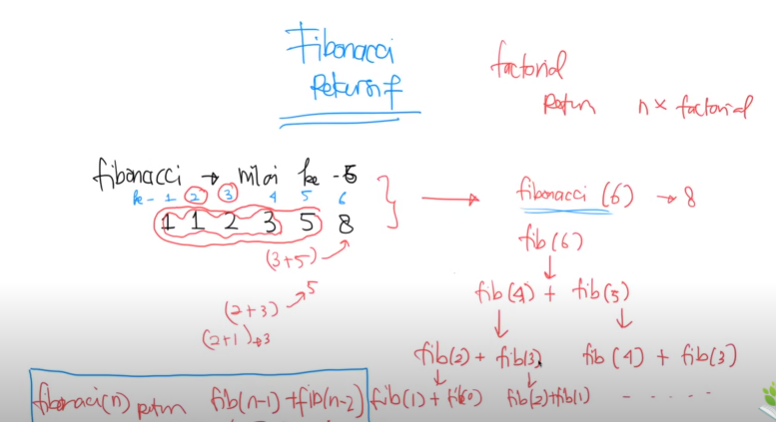 Fibonacci
Rekursif
factorial
Return n x factorial
fibonacci → nilai ke - 6
ke - 1 2 3 4 5 6
1 1 2 3 5 8
(3+5)
(2+3) → 5
(2+1) → 3
fibonacci (6) → 8
fib(6)
fib(4) + fib(5)
fib(2) + fib(3) fib(4) + fib(3)
fib(1) + fib(0) fib(2)+fib(1) - - - - -
fibonaci(n) return fib(n-1) + fib(n-2)